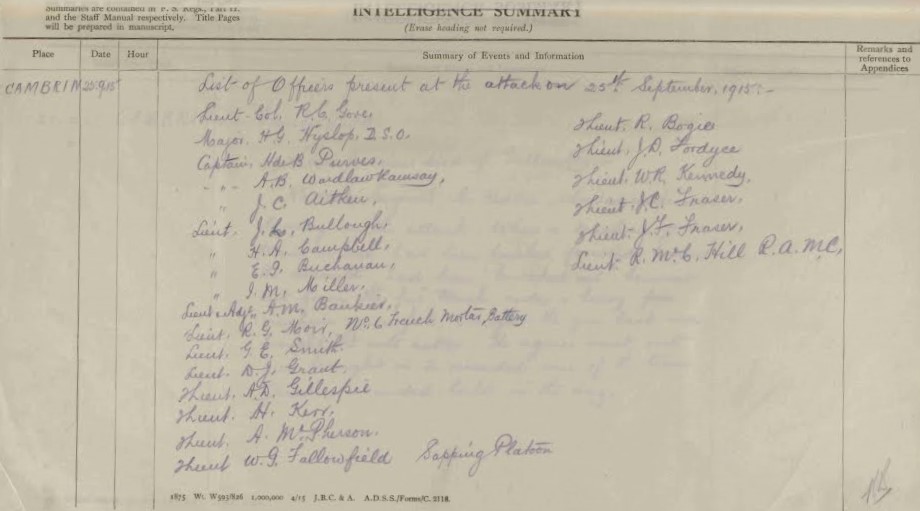 Summaries are contained in F. S. Regs., Part II.
and the Staff Manual respectively. Title Pages
will be prepared in manuscript.
INTELLIGENCE SUMMARY
(Erase heading not required.)
Place Date Hour Summary of Events and Information Remarks and references to Appendices
CAMBRIN 25.9.15 List of Officers present at the attack on 25th September, 1915:-
Lieut-Col. R.C. Gore.
Major. H.G. Hyslop. D.S.O.
Captain. H de B Purves.
" " A.B. Wardlaw Ramsay,
" J.C. Aitken,
Lieut. J. L. Bullough,
" H.A. Campbell,
" E.J. Buchanan,
" I.M. Miller.
Lieut & Adjt. A.M. Bankier.
Lieut. R.G. Moir, No. 6 Trench Mortar Battery
Lieut. G.E. Smith.
Lieut. D.J. Grant.
2Lieut. A.D. Gillespie
2Lieut. H. Kerr.
2Lieut. A. McPherson.
2Lieut W.G. Fallowfield Sapping Platoon
2Lieut. R. Bogie
2Lieut. J.D. Fordyce
2Lieut. W.R. Kennedy.
2Lieut. J.C. Fraser.
2Lieut. J.F. Fraser.
Lieut. R. McC. Hill R.A.M.C.
1875 Wt. W593/826 1,000,000 4/15 J.B.C. & A. A.D.S.S./Forms/C. 2118.